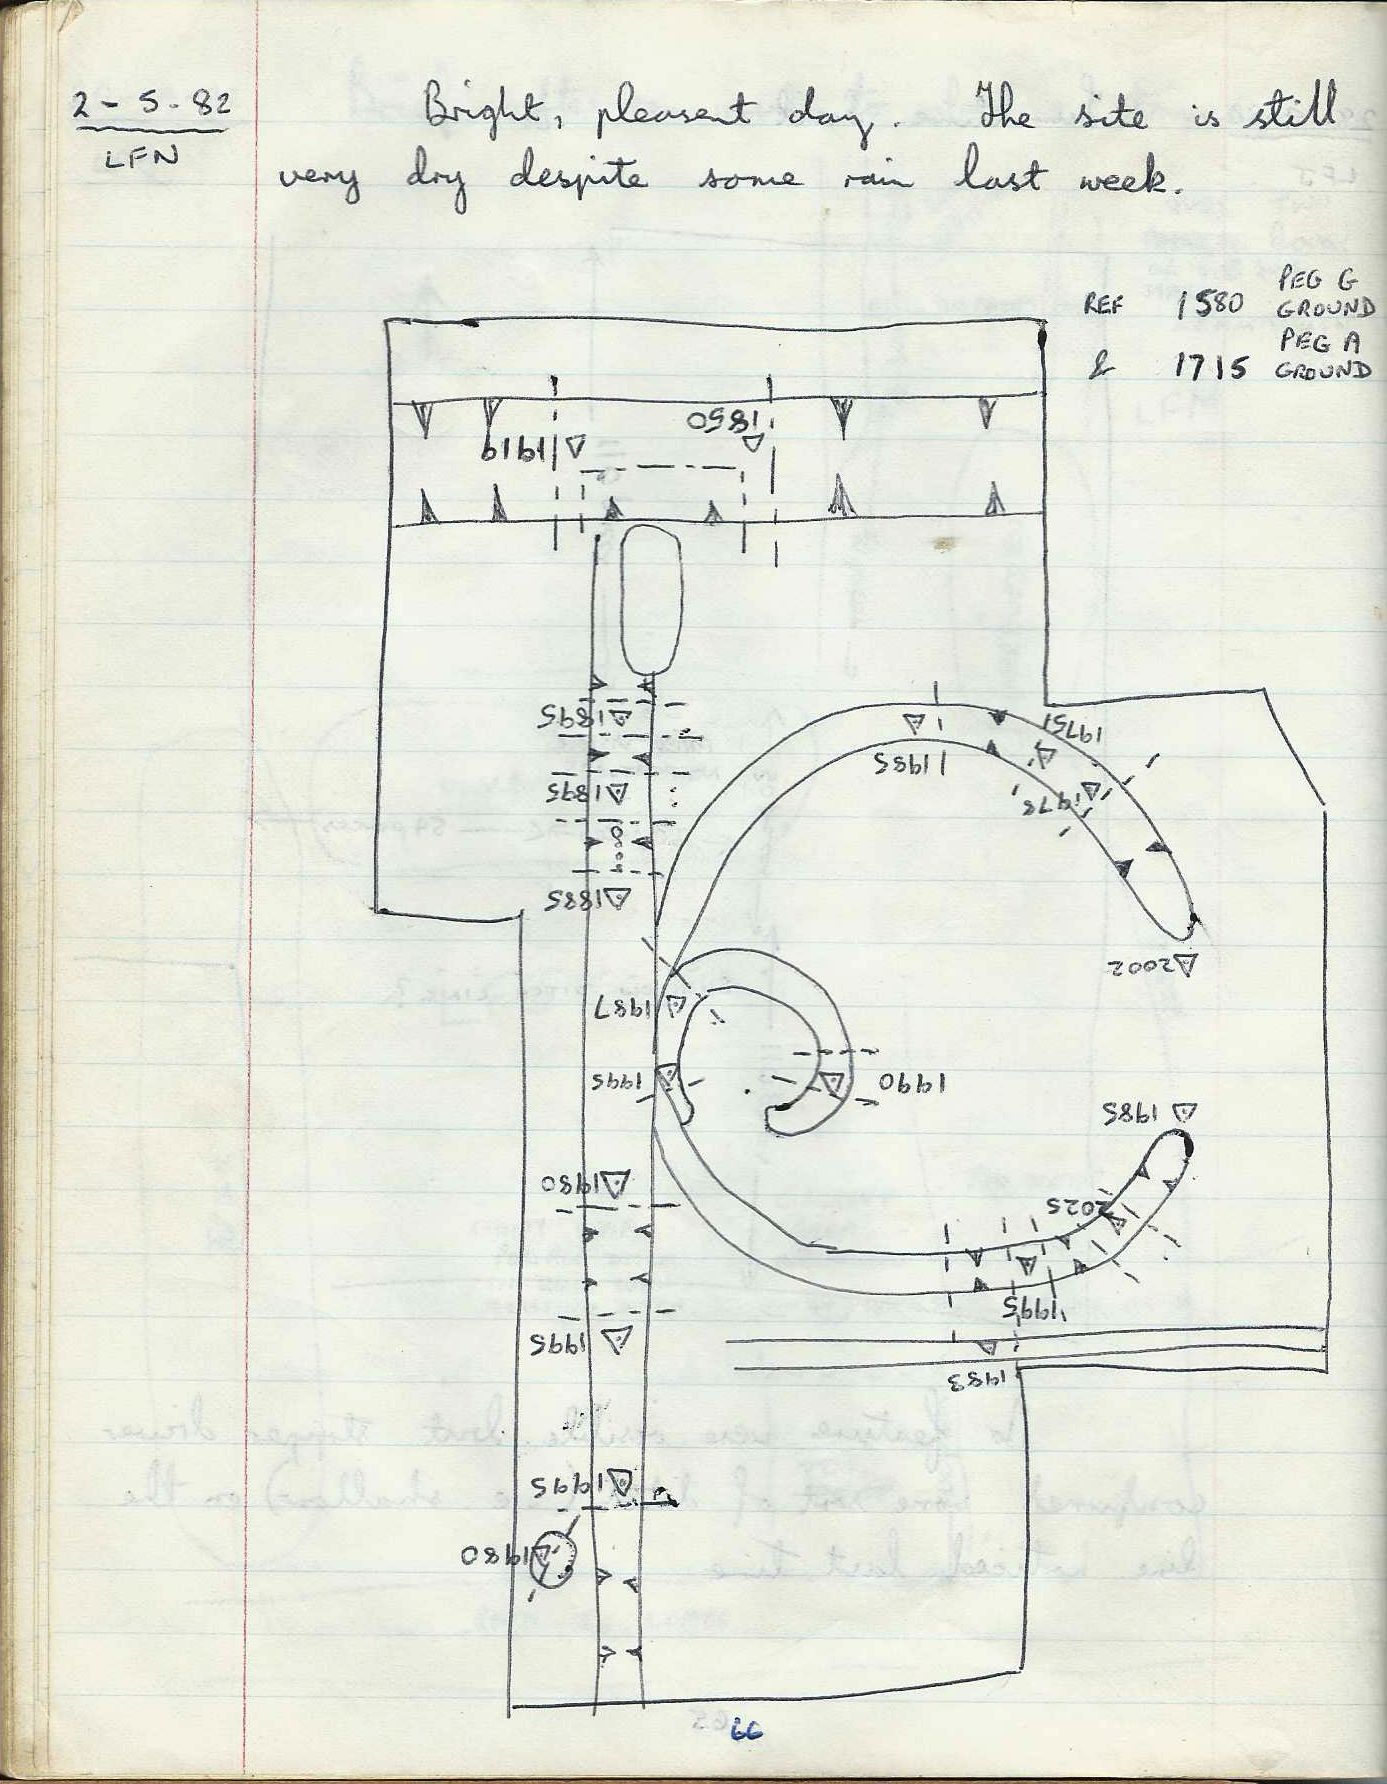 2 - 5 - 82
LFN
Bright, pleasent day. The site is still
very dry despite some rain last week.
REF 1580 PEG G GROUND
& 1715 PEG A GROUND
1850
1919
1895
1985
1975
1895
1978
1885
2002
1987
1995
1990
1985
1980
2025
1995
1995
1983
1995
1980
66